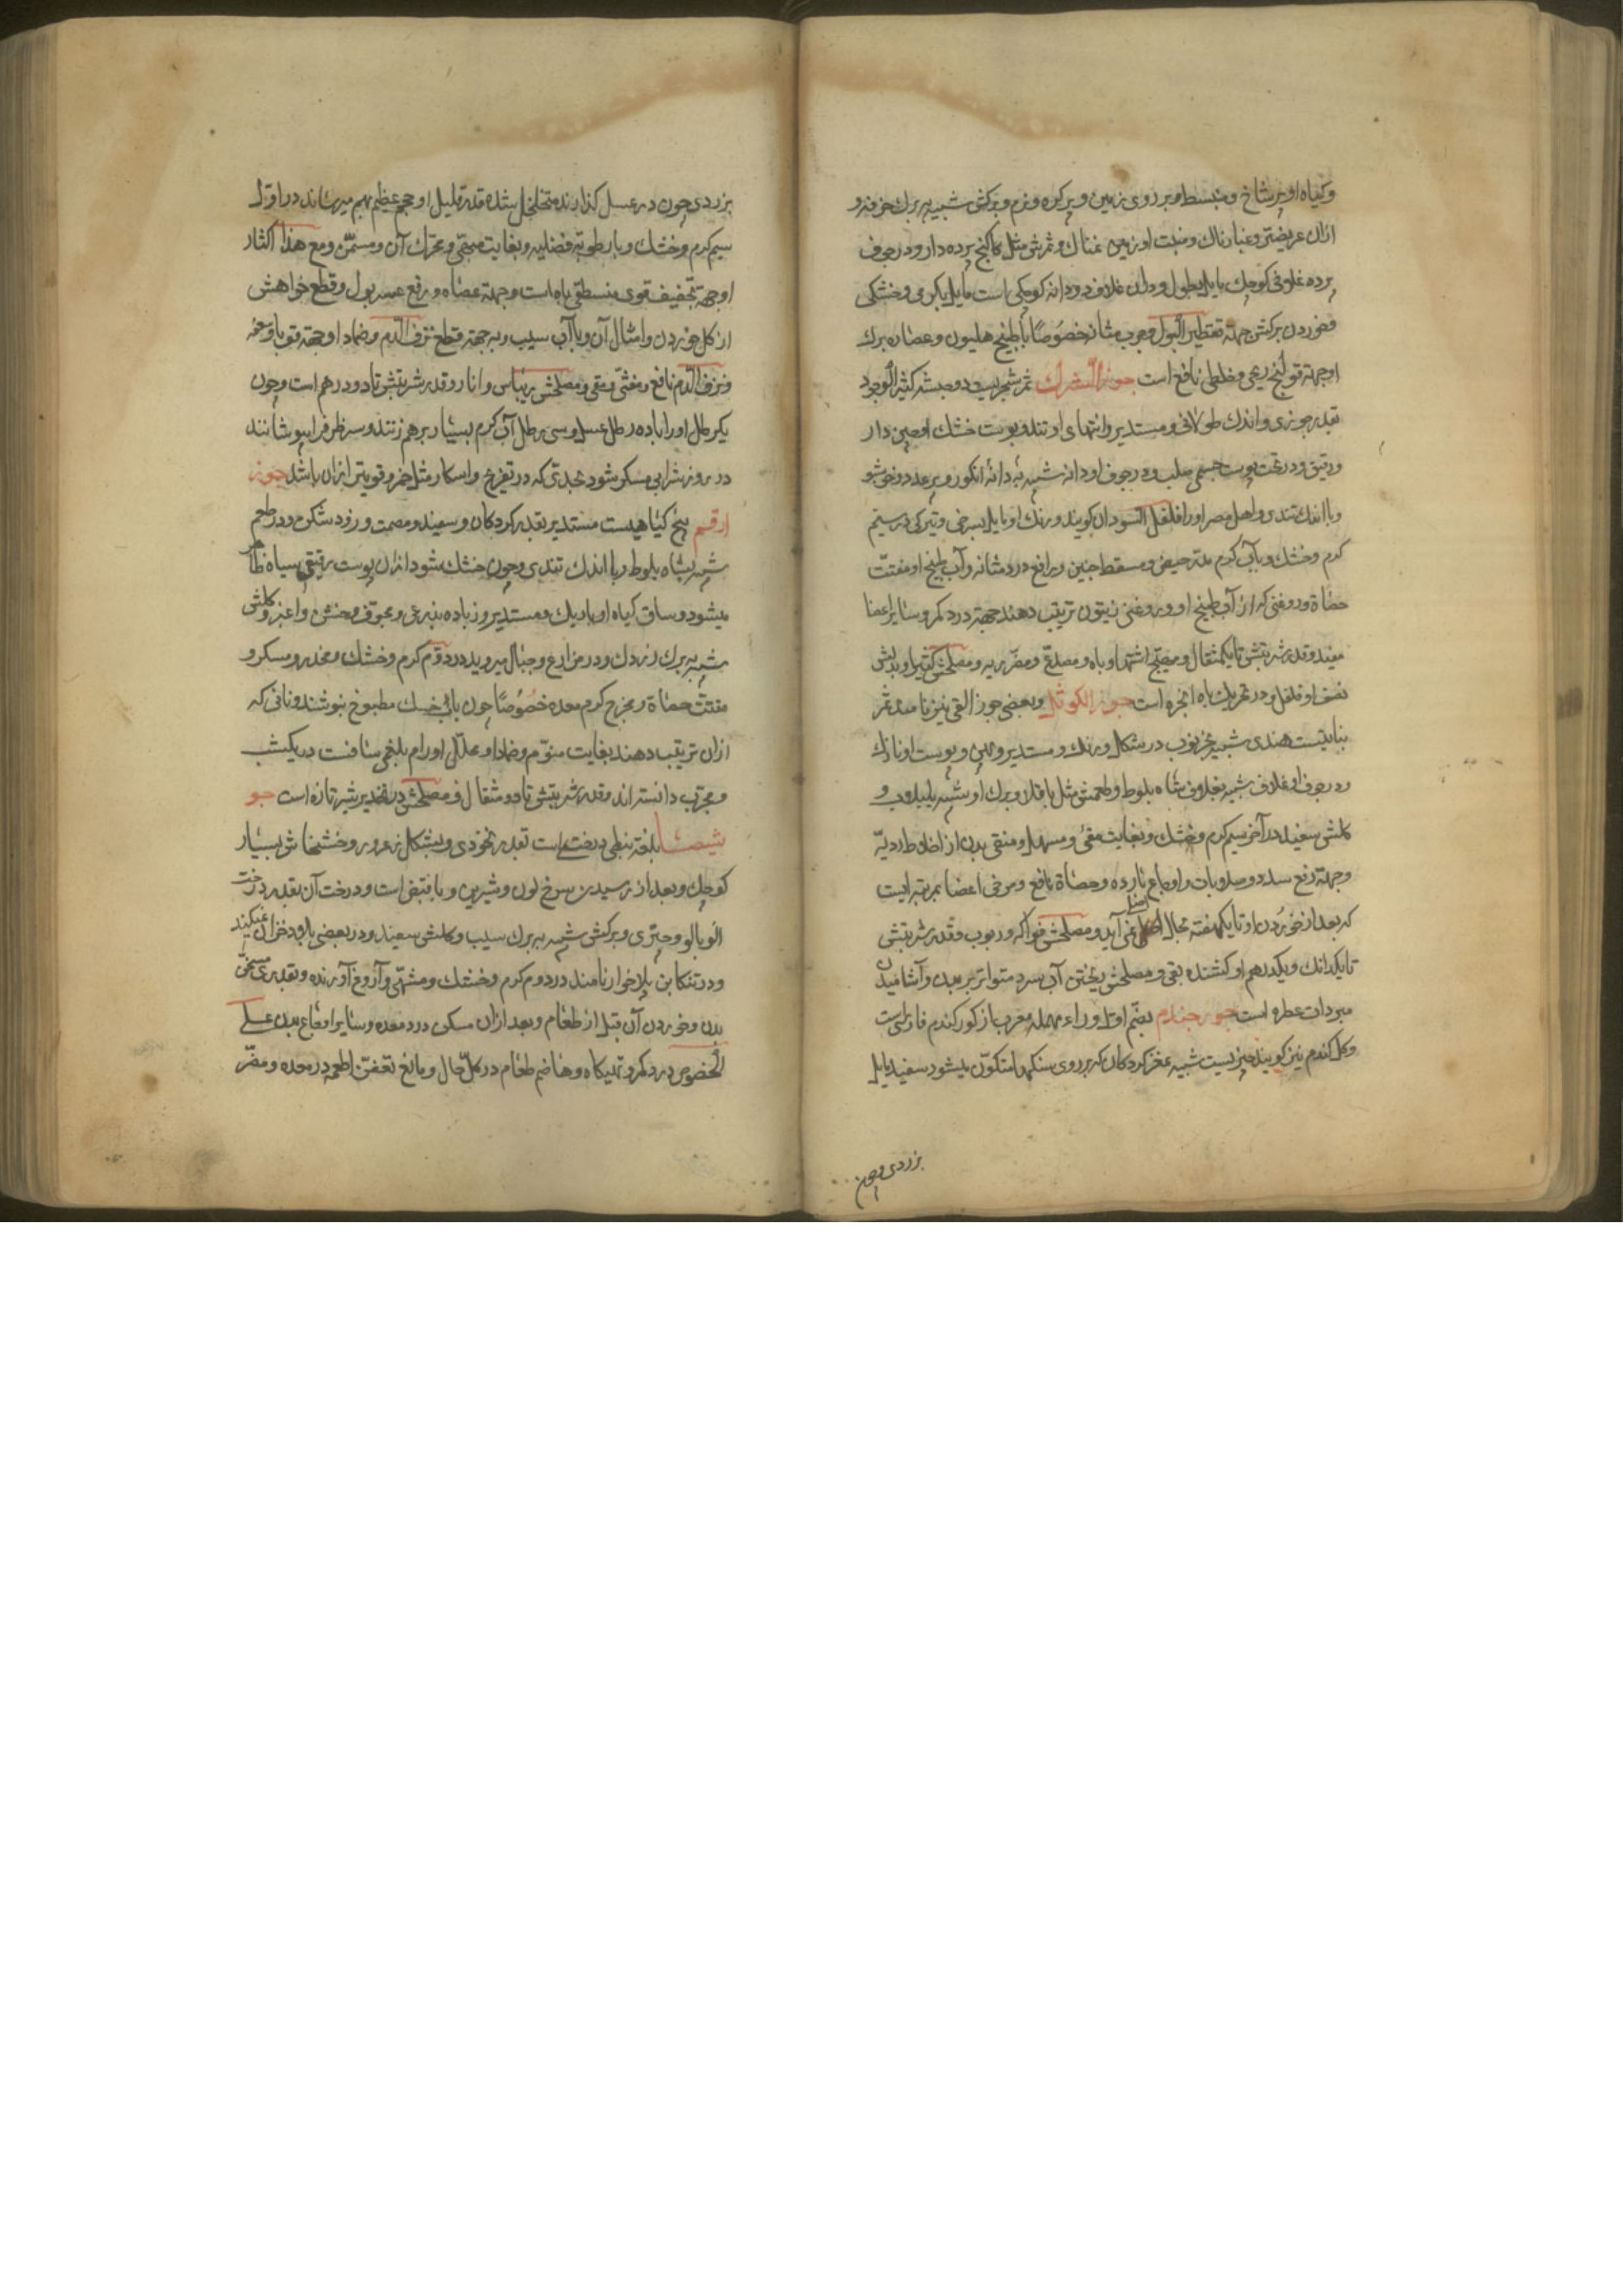 وکیاه او پرشاخ و منبسط بر روی زمین و پرکره و نرم و برکش شبیه به برك خرفه و
ازان عریضتر و غبارناك و منبت او زمین نمناك و ثمرش مثل کاکنج پرده دار و در جوف
پرده غلافی کوچك مایل بطول و در ان غلاف دو دانه کوچکی است مایل بکرمی و خشکی
و خوردن برکش جهة تقطیر البول و جرب مثانه خصوصًا با طبیخ هلیون و عصاره برك
او جهة قولنج ریحی و خلطی نافع است جوز الشرك ثمر شجریست در حبشه کثیر الوجود
بقدر جوزی و اندك طولانی و مستدیر و انتهای او تند و پوست خشك او چین دار
و رقیق و در تحت پوست جسمی صلب و در جوف او دانه شبیه به دانۀ انکور و پر عدد و خوشبو
و با اندك تندی و اهل مصر او را فلفل السودان کویند و رنك او مایل بسرخی و تیرکی در سیم
کرم و خشك و با آب کرم مدر حیض و مسقط جنین و رافع درد مثانه و آب طبیخ او مفتت
حصاة و روغنی که از آب طبیخ او و روغن زیتون ترتیب دهند جهة درد کمر و سایر اعضا
مفید و قدر شربتش تا یکمثقال و مهیج اشتها و باه و مصدع و مضر ریه و مصلحش کتیرا و بدلش
نصف او فلفل و در تحریك باه انجره است جوز الکوثل و بعضی جوز القی نیز نامند ثمر
نباتیست هندی شبیه بخرنوب در شکل و رنك و مستدیر و پهن و پوست او نازك
و در جوف او غلاف شبیه بغلاف شاه بلوط و طعمش مثل باقلا و برك او شبیه بلبلاب و
کلش سفید در آخر سیم کرم و خشك و بغایت مقئ و مسهل و منقی بدن از اخلاط ردیه
و جهة رفع سدد و صلابات و اوجاع بارده و حصاة نافع و مرخی اعضا بمرتبه ایست
که بعد از خوردن او تا یکهفته بحال اصلی نمی آید و مصلحش فواکه و ربوب و قدر شربتش
تا یکدانك و یکدرهم او کشنده بقی و مصلحش ریختن آب سرد متواتر بر بدن و آشامیدن
مبردات عطره است جوز جندم بضم اول و راء مهمله معرب از کور کندم فارسی است
و کل کندم نیز کویند چیزیست شبیه بمغز کردکان که بر روی سنکها متکون میشود سفید مایل
بزردی و چون
بزردی چون در عسل کذارند متخلخل شده قدر قلیل او حجم عظیم بهم میرساند در اول
سیم کرم و خشك و با رطوبة فضلیه و بغایت مبهی و محرك آن و مسمن و مع هذا اکثار
او جهة تجفیف قوی مسقط باه است و جهة حصاه و رفع عسر بول و قطع خواهش
از کل خوردن و امثال آن و با آب سیب و به جهة قطع نزف الدم و ضماد او جهة قوبا و سعفه
و نزف الدم نافع و مغثی و مقی و مصلحش ریباس و انار و قدر شربتش تا دو درهم است و چون
یکرطل او را با ده رطل عسل و سی رطل آب کرم بسیار بر هم زنند و سر ظرف را بپوشانند
در روز شرابی مسکر شود بحدی که در تفریح و اسکار مثل خمر و قویتر ازان باشد جوز
ارقم بیخ کیاهیست مستدیر بقدر کردکان و سفید و مصمت و زود شکن و در طعم
شبیه بشاه بلوط و با اندك تندی و چون خشك شود ازان پوست رقیقی سیاه ظاهر
میشود و ساق کیاه او باریك و مستدیر و زیاده بذرعی و مجوف و خشن و اغبر و کلش
شبیه به برك زردك و در مزارع و جبال میروید در دوم کرم و خشك و مخدر و مسکر و
مفتت حصاة و مخرج کرم معده خصوصًا چون با آب خسك مطبوخ بنوشند و نانی که
ازان ترتیب دهند بغایت منوم و ضماد او محلل اورام بلغمی ساقست در یکشب
و مجرب دانسته اند و قدر شربتش تا دو مثقال و مصلحش در تخدیر شیر تازه است جو
شیصا بلغة نبطی درختی است بقدر نخودی و بشکل زعرور و خشخاش بسیار
کوچك و بعد از رسیدن سرخ لون و شیرین و با قبض است و درخت آن بقدر درخت
الوبالو و چتری و برکش شبیه به برك سیب و کلش سفید و در بعضی بلاد خزان نمیکند
و در تنکابن پلاخوار نامند در دوم کرم و خشك و مشهی و آروغ آورنده و بقدری مسخن
بدن و خوردن آن قبل از طعام و بعد ازان مسکن درد معده و سایر اوجاع بدن علی
الخصوص درد کمر و تهیکاه و هاضم طعام در کل حال و مانع تعفن اطعمه در معده و مضر